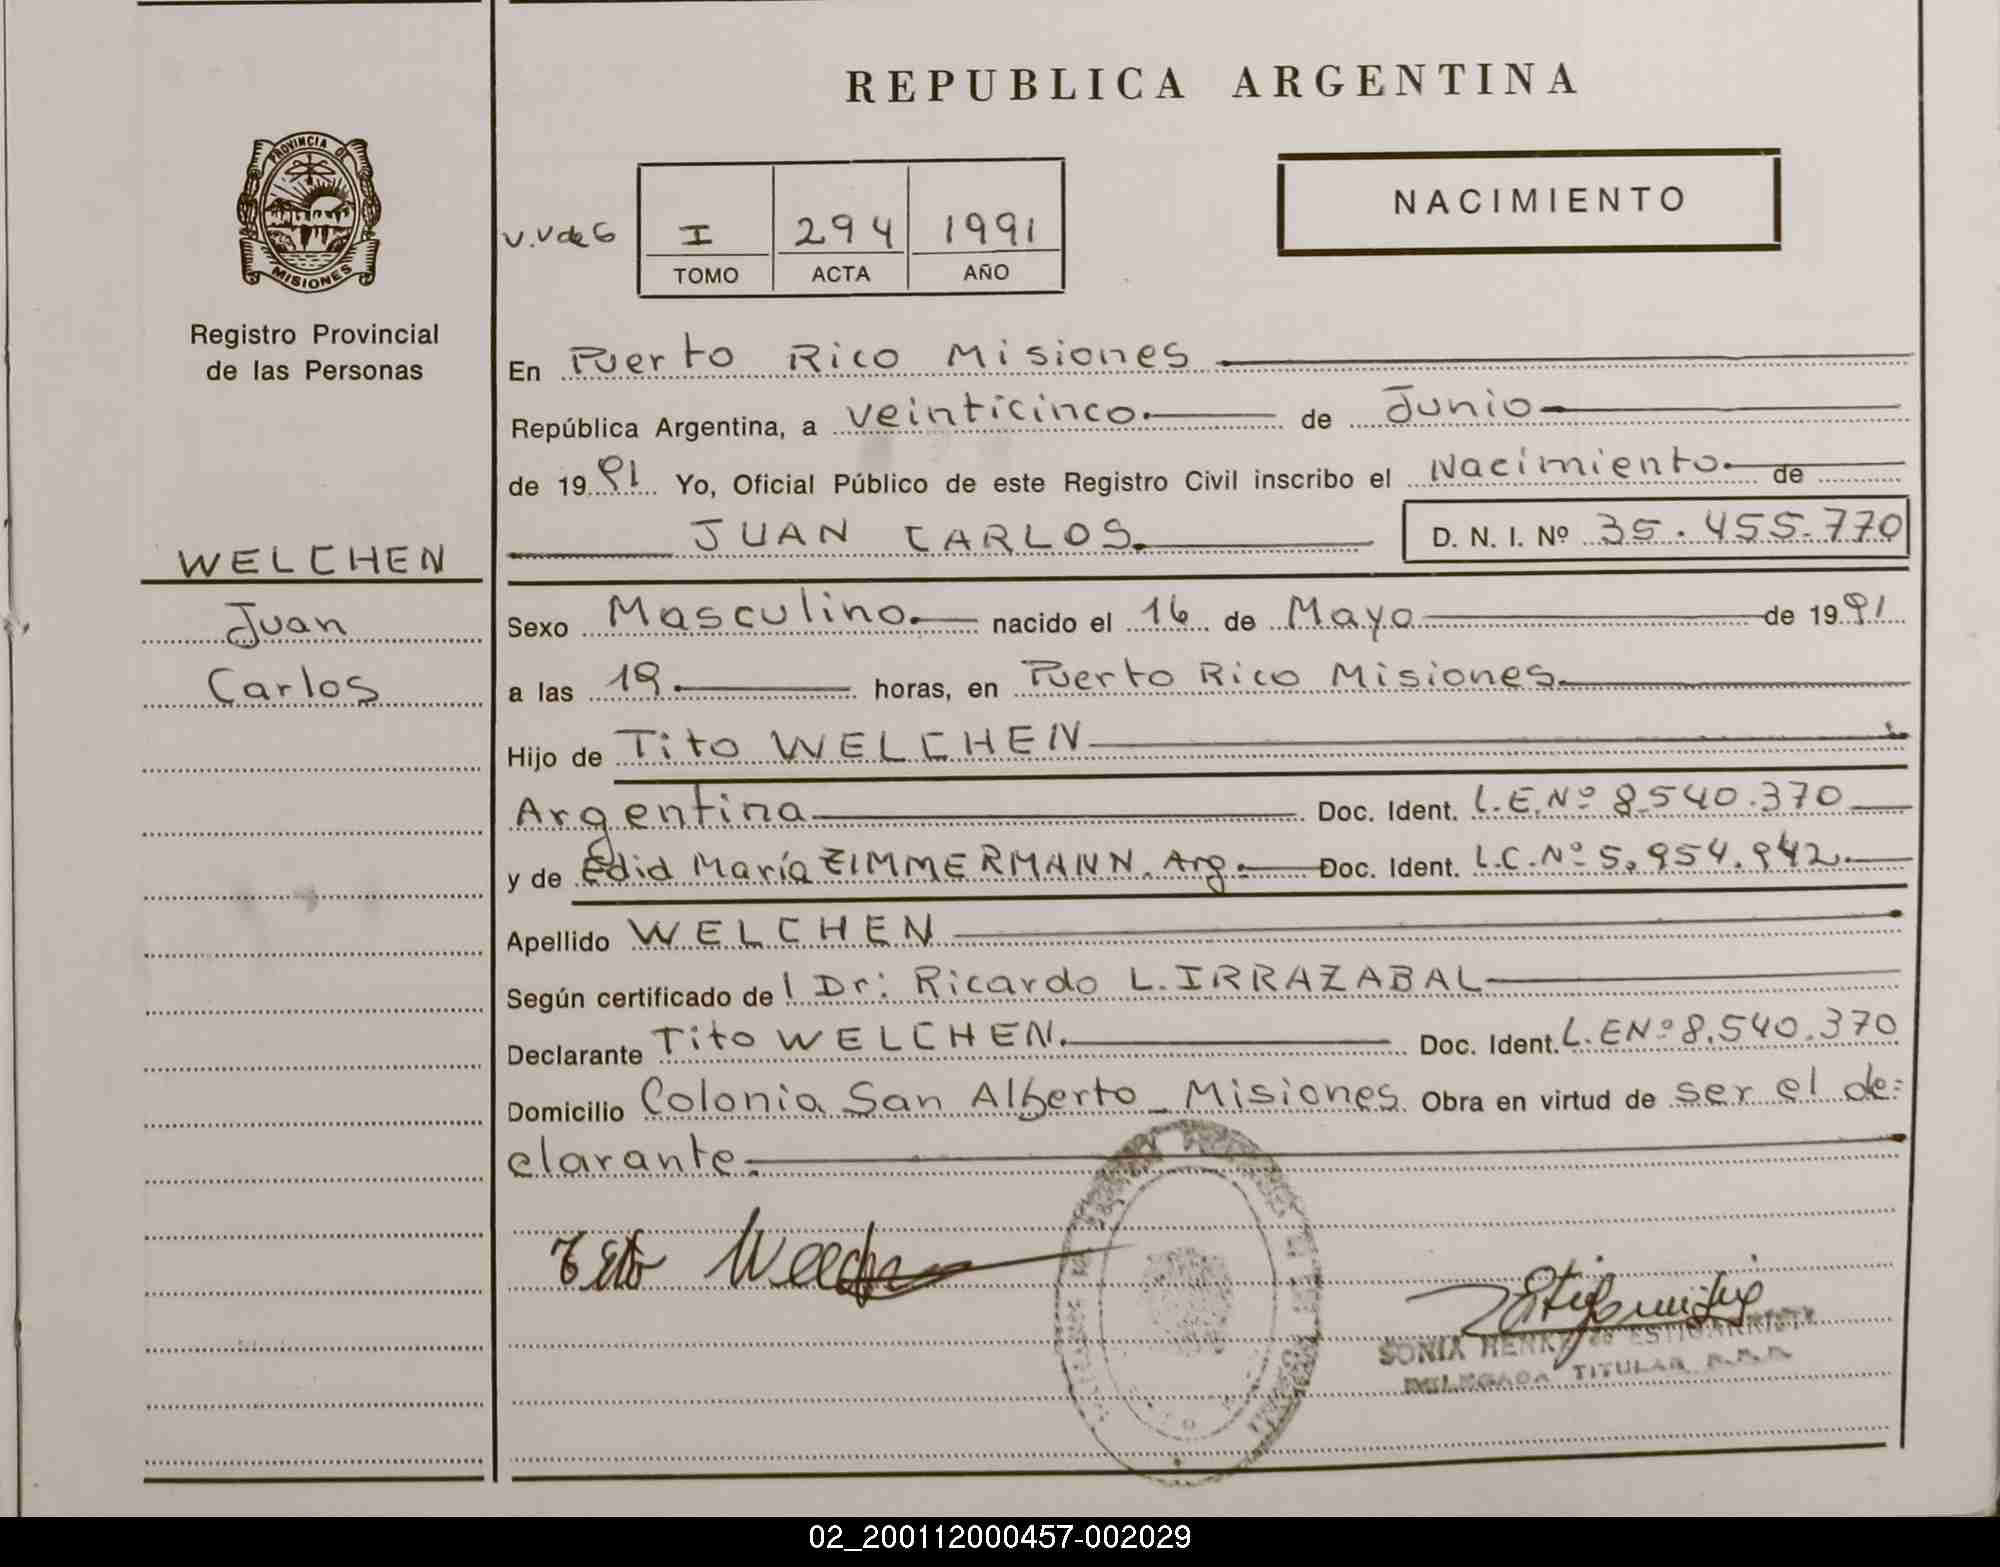 REPUBLICA ARGENTINA
PROVINCIA DE
MISIONES
Registro Provincial
de las Personas
NACIMIENTO
V.V de G
I 294 1991
TOMO ACTA AÑO
En Puerto Rico Misiones
República Argentina, a veinticinco. de Junio
de 1991 Yo, Oficial Público de este Registro Civil inscribo el Nacimiento. de
JUAN CARLOS. D. N. I. Nº 35.455.770
WELCHEN
Juan
Carlos
Sexo Masculino. nacido el 16 de Mayo de 1991
a las 19 horas, en Puerto Rico Misiones.
Hijo de Tito WELCHEN
Argentina Doc. Ident. L.E.Nº 8.540.370
y de Edid María ZIMMERMANN. Arg. Doc. Ident. L.C.Nº 5.954.942.
Apellido WELCHEN
Según certificado del Dr: Ricardo L. IRRAZABAL
Declarante Tito WELCHEN. Doc. Ident. L.ENº 8.540.370
Domicilio Colonia San Alberto - Misiones. Obra en virtud de ser el de=
clarante.
Tito Welchen
SONIA
TITULAR
02_200112000457-002029